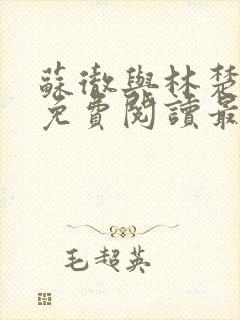 蘇徹與林楚
免費閱讀最
毛超英